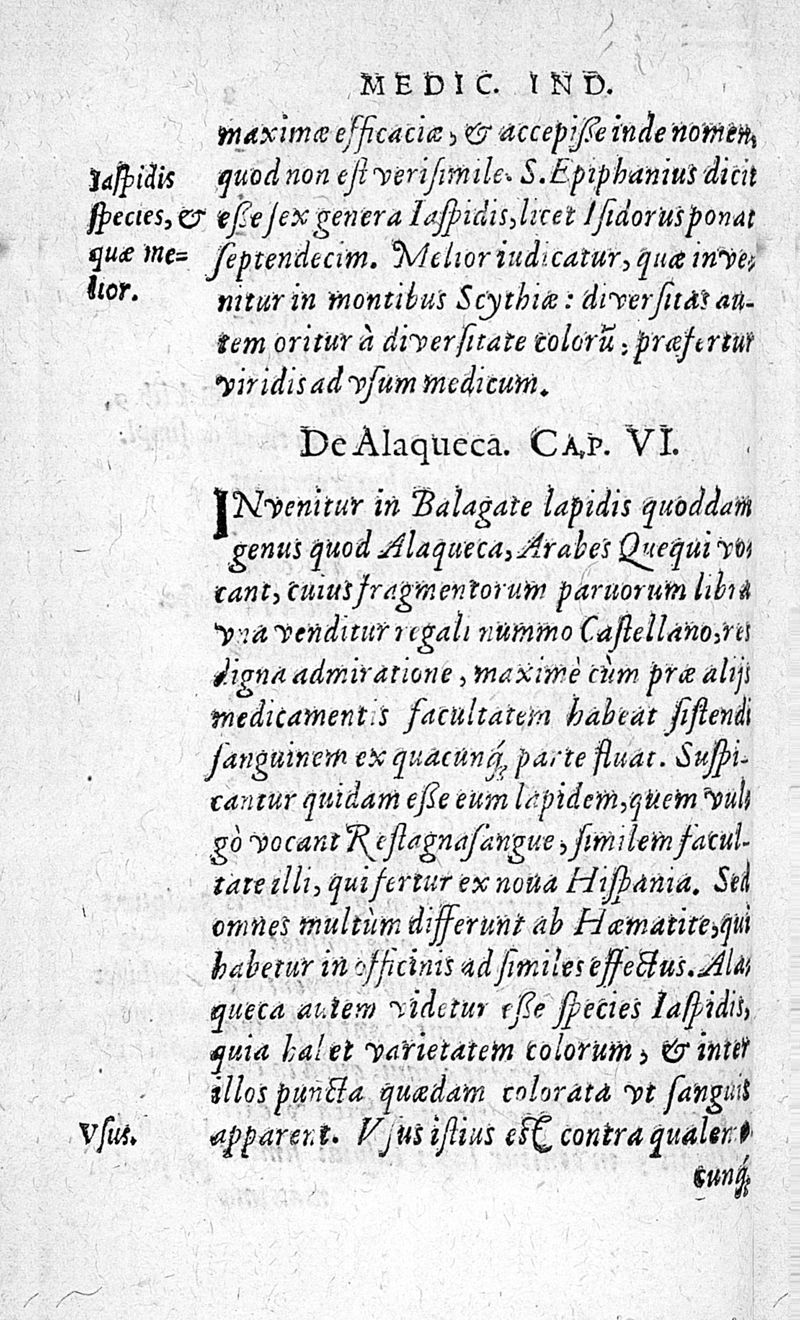 MEDIC. IND.
maximæ efficaciæ, & accepiſſe inde nomen,
quod non eſt veriſimile. S. Epiphanius dicit
eſſe ſex genera Iaſpidis, licet Iſidorus ponat
ſeptendecim. Melior iudicatur, quæ inve-
nitur in montibus Scythiæ: diverſitas au-
tem oritur à diverſitate colorũ; præfertur
viridis ad vſum medicum.
Iaſpidis
ſpecies, &
quæ me-
lior.
De Alaqueca. CAP. VI.
INvenitur in Balagate lapidis quoddam
genus quod Alaqueca, Arabes Quequi vo-
cant, cuius fragmentorum paruorum libra
vna venditur regali nummo Caſtellano, res
digna admiratione, maximè cùm præ alijs
medicamentis facultatem habeat ſiſtendi
ſanguinem ex quacunq́; parte fluat. Suſpi-
cantur quidam eſſe eum lapidem, quem vul-
gò vocant Reſtagnaſangue, ſimilem facul-
tate illi, qui fertur ex noua Hiſpania. Sed
omnes multùm differunt ab Hæmatite, qui
habetur in officinis ad ſimiles effectus. Ala-
queca autem videtur eſſe ſpecies Iaſpidis,
quia habet varietatem colorum, & inter
illos puncta quædam colorata vt ſanguis
apparent. Vſus iſtius eſt contra qualem-
Vſus.
cunq́;